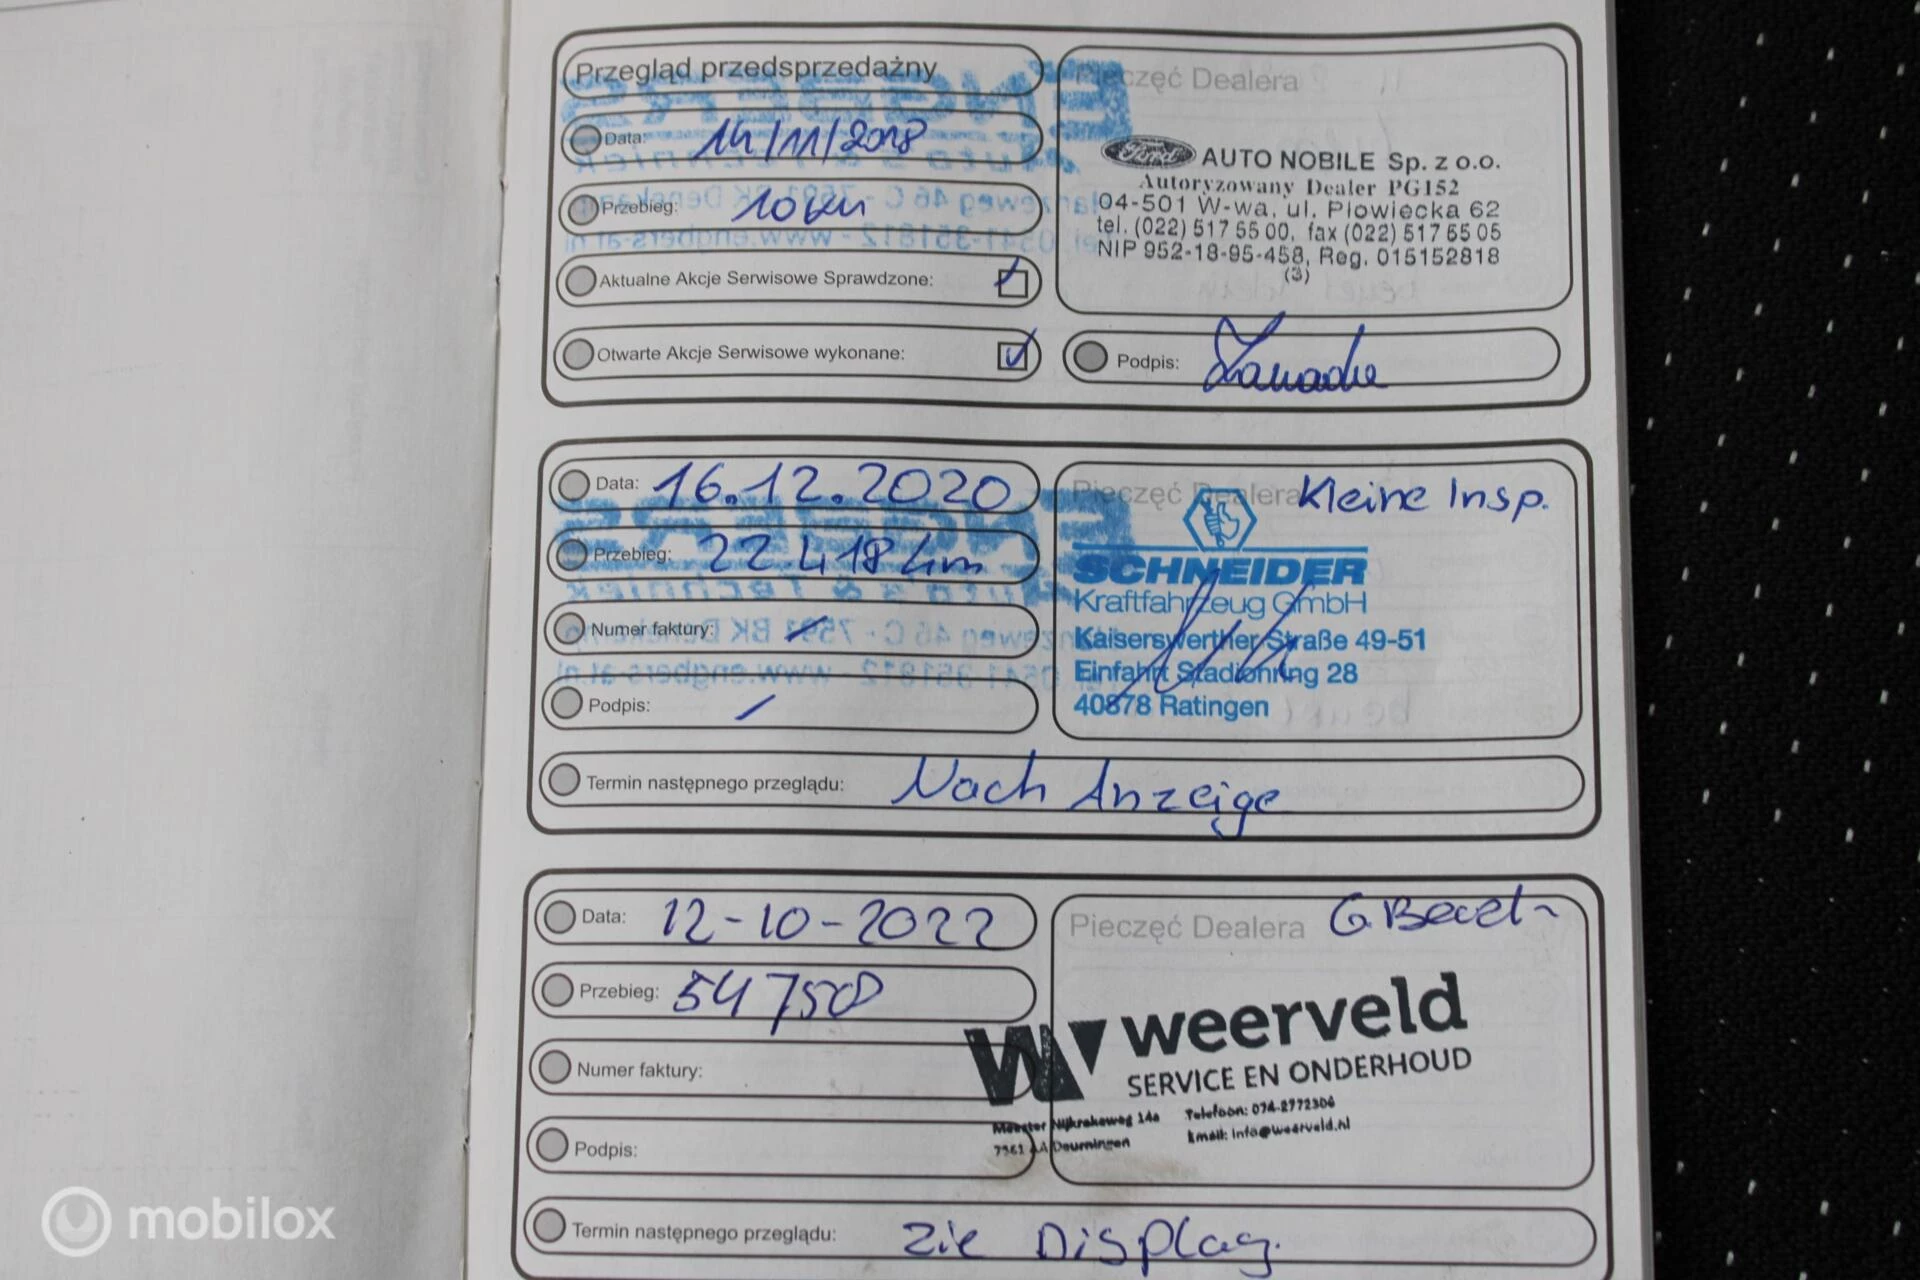 Przegląd przedsprzedażny
Data: 14/11/2018
Przebieg: 10 km
Aktualne Akcje Serwisowe Sprawdzone:
Otwarte Akcje Serwisowe wykonane:
Pieczęć Dealera
Ford AUTO NOBILE Sp. z o.o.
Autoryzowany Dealer PG152
04-501 W-wa, ul. Płowiecka 62
tel. (022) 517 55 00, fax (022) 517 55 05
NIP 952-18-95-458, Reg. 015152818
(3)
Podpis:
Data: 16.12.2020
Przebieg: 22.418 km
Numer faktury:
Podpis:
Pieczęć Dealera Kleine Insp.
SCHNEIDER
Kraftfahrzeug GmbH
Kaiserswerther Straße 49-51
Einfahrt Stadionring 28
40878 Ratingen
Termin następnego przeglądu: Nach Anzeige
Data: 12-10-2022
Przebieg: 54 750
Numer faktury:
Podpis:
Pieczęć Dealera G. Beurt
weerveld
SERVICE EN ONDERHOUD
Meester Nijkrakeweg 14a Telefoon: 074-2772306
7561 AA Deurningen Email: info@weerveld.nl
Termin następnego przeglądu: Zie Display.
mobilox